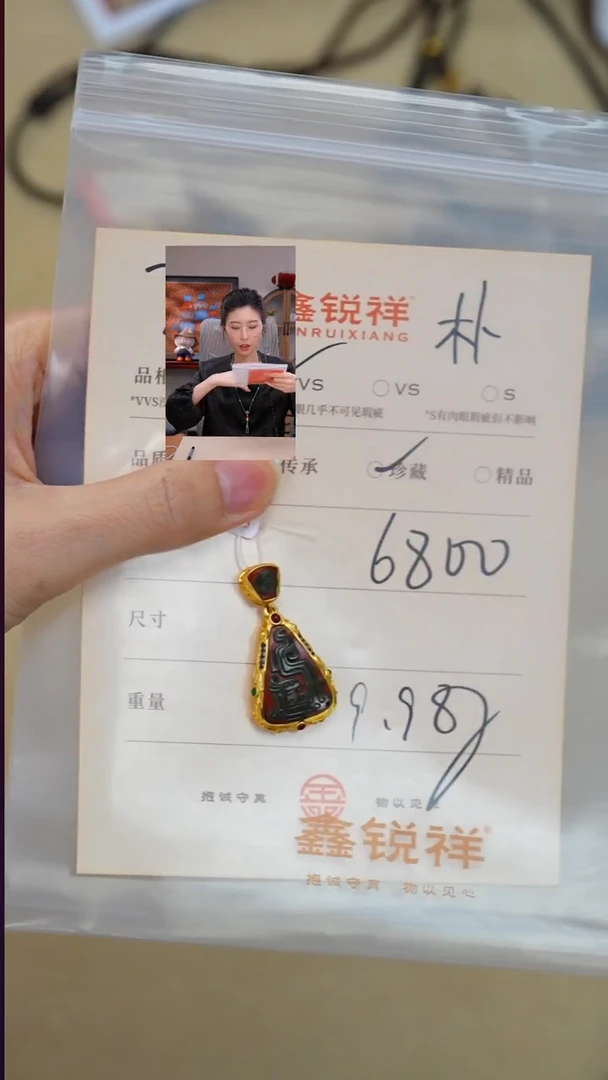 鑫锐祥
NRUIXIANG
朴
品相
VVS ○ VS ○ S
眼几乎不可见瑕疵 *S有肉眼瑕疵但不影响
品质 传承 珍藏 ○ 精品
6800
尺寸
重量 9.98g
抱诚守真 物以见心
鑫锐祥
抱诚守真 物以见心